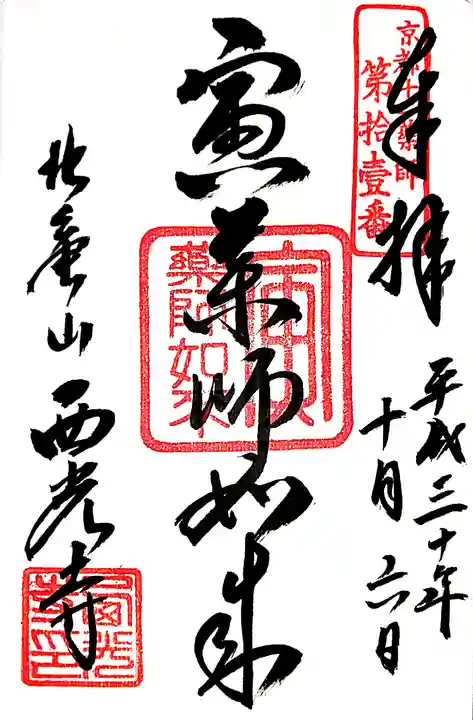 奉拝
京都十二薬師
第拾壹番
平成三十年
十月六日
寅薬師如来
寅
藥師如来
北亀山 西光寺
西光寺印